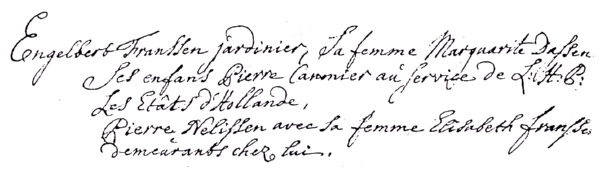 Engelbert Franssen jardinier, Sa femme Marguarite Dassen
Ses enfans Pierre Canonier au service de L: H: P:
Les Etâts d'Hollande,
Pierre Nelissen avec sa femme Elisabeth franssen
demeurants chez lui.